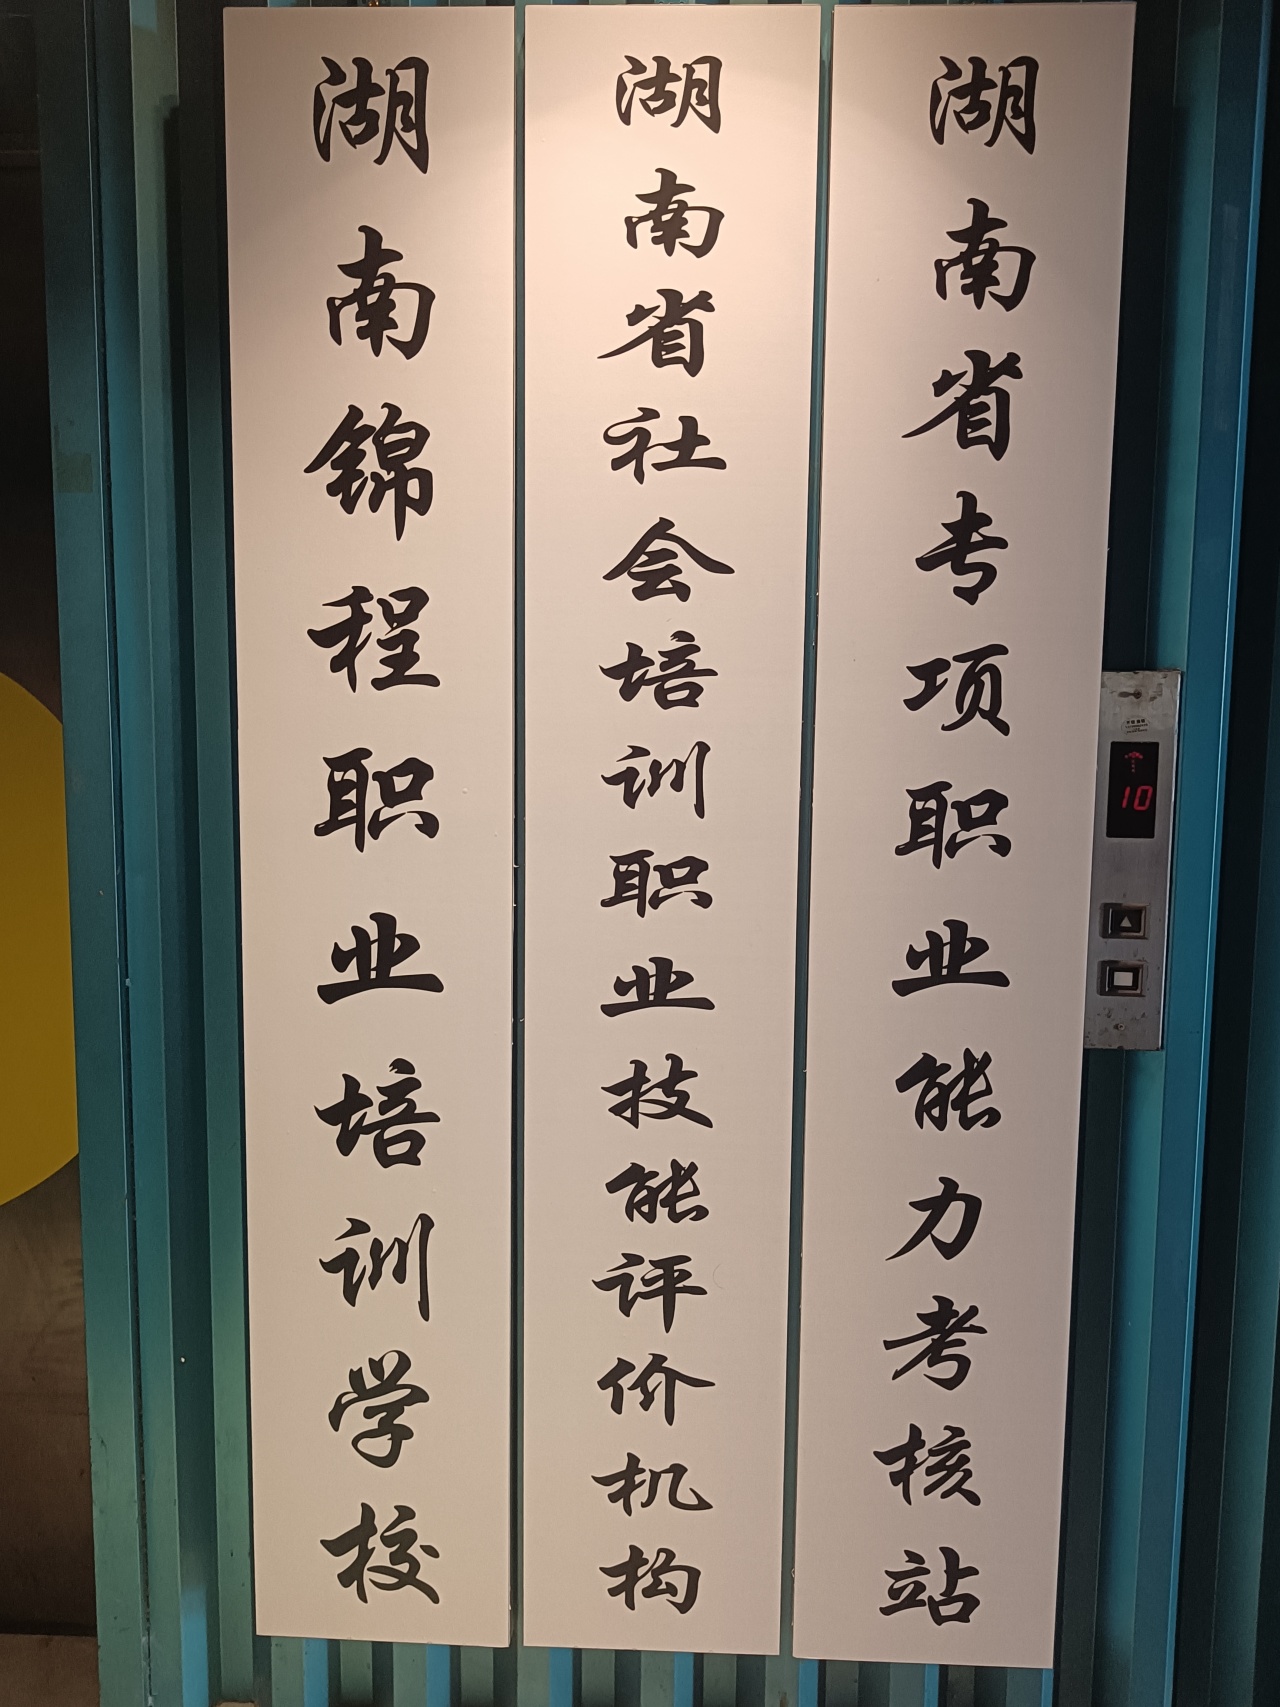 湖南锦程职业培训学校
湖南省社会培训职业技能评价机构
湖南省专项职业能力考核站
10